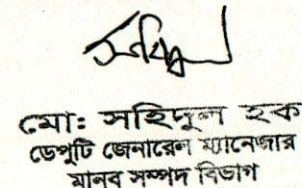 মো: সহিদুল হক
ডেপুটি জেনারেল ম্যানেজার
মানব সম্পদ বিভাগ